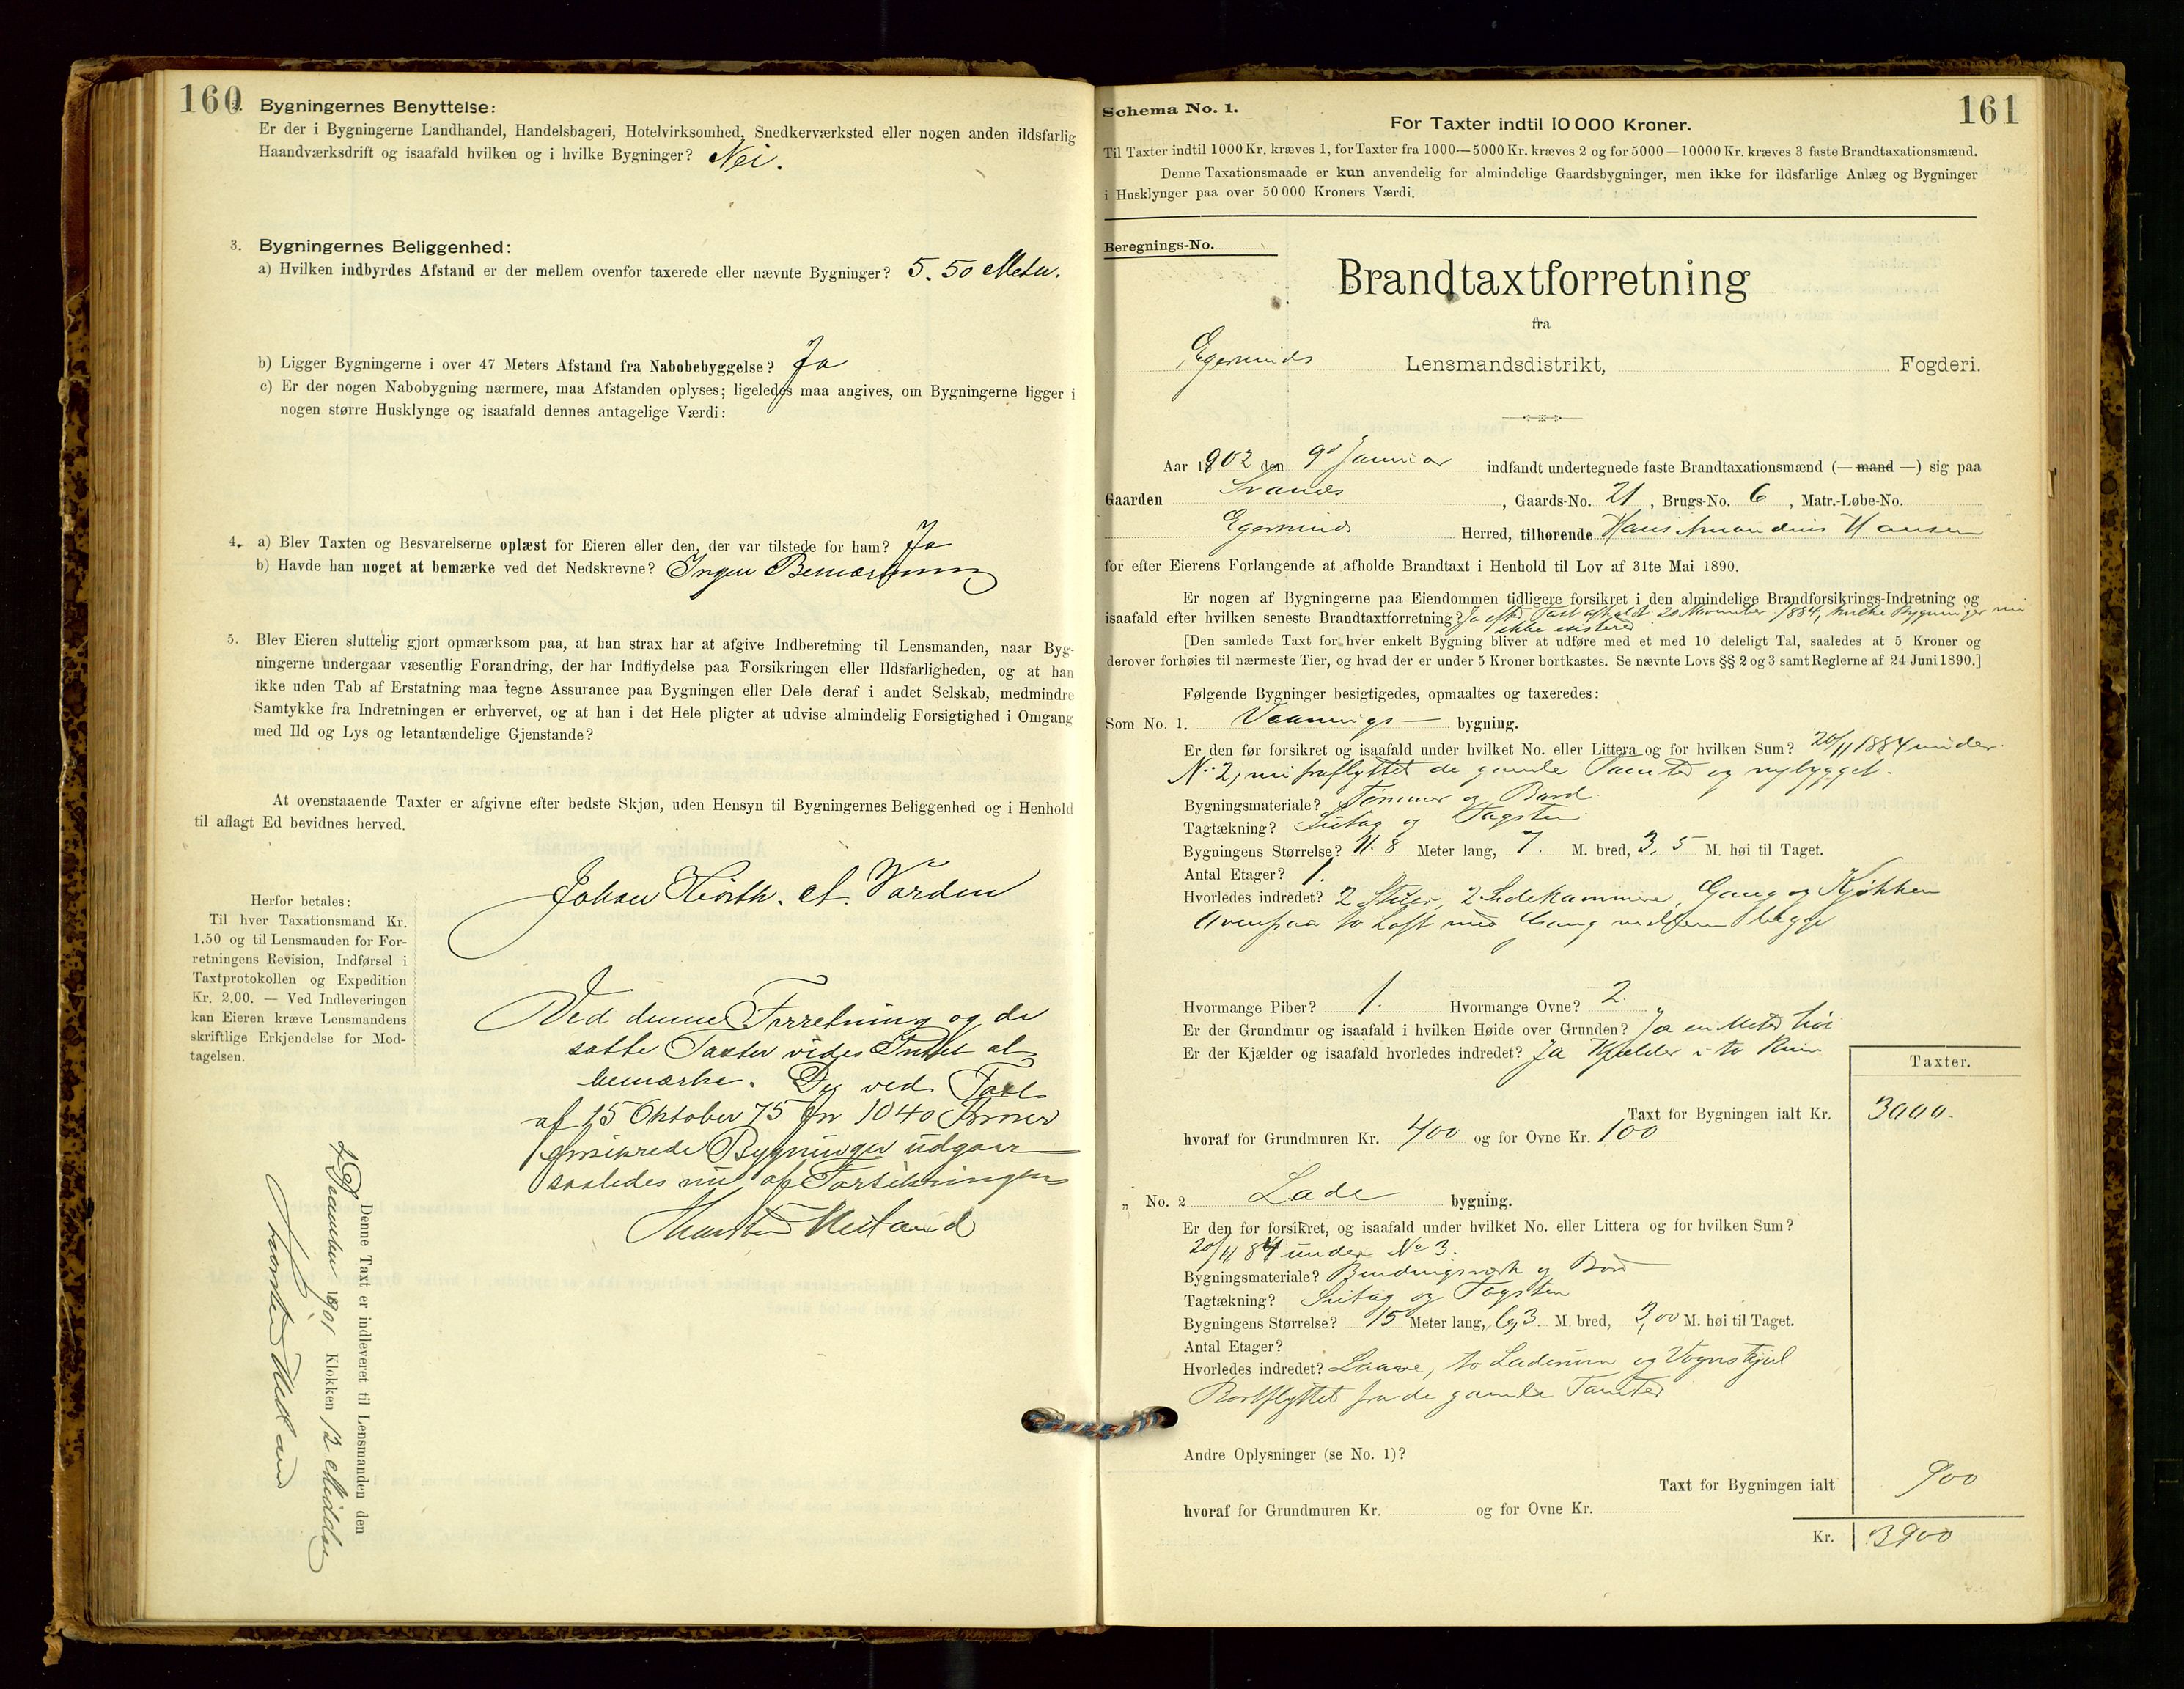 160
2. Bygningernes Benyttelse:
Er der i Bygningerne Landhandel, Handelsbageri, Hotelvirksomhed, Snedkerværksted eller nogen anden ildsfarlig
Haandværksdrift og isaafald hvilken og i hvilke Bygninger? Nei.
3. Bygningernes Beliggenhed:
a) Hvilken indbyrdes Afstand er der mellem ovenfor taxerede eller nævnte Bygninger? 5.50 Meter.
b) Ligger Bygningerne i over 47 Meters Afstand fra Nabobebyggelse? Ja
c) Er der nogen Nabobygning nærmere, maa Afstanden oplyses; ligeledes maa angives, om Bygningerne ligger i
nogen større Husklynge og isaafald dennes antagelige Værdi:
4. a) Blev Taxten og Besvarelserne oplæst for Eieren eller den, der var tilstede for ham? Ja
b) Havde han noget at bemærke ved det Nedskrevne? Ingen Bemærkning
5. Blev Eieren sluttelig gjort opmærksom paa, at han strax har at afgive Indberetning til Lensmanden, naar Byg-
ningerne undergaar væsentlig Forandring, der har Indflydelse paa Forsikringen eller Ildsfarligheden, og at han
ikke uden Tab af Erstatning maa tegne Assurance paa Bygningen eller Dele deraf i andet Selskab, medmindre
Samtykke fra Indretningen er erhvervet, og at han i det Hele pligter at udvise almindelig Forsigtighed i Omgang
med Ild og Lys og letantændelige Gjenstande?
At ovenstaaende Taxter er afgivne efter bedste Skjøn, uden Hensyn til Bygningernes Beliggenhed og i Henhold
til aflagt Ed bevidnes herved.
Johan Hjorth. A. Varden
Herfor betales:
Til hver Taxationsmand Kr.
1.50 og til Lensmanden for For-
retningens Revision, Indførsel i
Taxtprotokollen og Expedition
Kr. 2.00. — Ved Indleveringen
kan Eieren kræve Lensmandens
skriftlige Erkjendelse for Mod-
tagelsen.
Ved denne Forretning og de
satte Taxter vides Intet at
bemærke. De ved Taxt
af 15 Oktober 75 for 1040 Kroner
forsikrede Bygninger udgaar
saaledes nu af Forsikringen
Thorsten Mekland
Denne Taxt er indleveret til Lensmanden den
4 December 1901 Klokken 12 Middag
Thorsten Mekland
161
Schema No. 1.
For Taxter indtil 10 000 Kroner.
Til Taxter indtil 1000 Kr. kræves 1, for Taxter fra 1000—5000 Kr. kræves 2 og for 5000—10000 Kr. kræves 3 faste Brandtaxationsmænd.
Denne Taxationsmaade er kun anvendelig for almindelige Gaardsbygninger, men ikke for ildsfarlige Anlæg og Bygninger
i Husklynger paa over 50 000 Kroners Værdi.
Beregnings-No.
Brandtaxtforretning
fra
Egersunds Lensmandsdistrikt, Fogderi.
Aar 1902 den 9d Januar indfandt undertegnede faste Brandtaxationsmænd (—mand—) sig paa
Gaarden Svanes, Gaards-No. 21, Brugs-No. 6, Matr.-Løbe-No.
Egersunds Herred, tilhørende Hans Amandius Hansen
for efter Eierens Forlangende at afholde Brandtaxt i Henhold til Lov af 31te Mai 1890.
Er nogen af Bygningerne paa Eiendommen tidligere forsikret i den almindelige Brandforsikrings-Indretning og
isaafald efter hvilken seneste Brandtaxtforretning? Ja efter Taxt afholdt 20 November 1884, hvilke Bygninger nu
ikke existerer
[Den samlede Taxt for hver enkelt Bygning bliver at udføre med et med 10 deleligt Tal, saaledes at 5 Kroner og
derover forhøies til nærmeste Tier, og hvad der er under 5 Kroner bortkastes. Se nævnte Lovs §§ 2 og 3 samt Reglerne af 24 Juni 1890.]
Følgende Bygninger besigtigedes, opmaaltes og taxeredes:
Som No. 1. Vaanings- bygning.
Er den før forsikret og isaafald under hvilket No. eller Littera og for hvilken Sum? 20/11 1884 under
No 2, nu fraflyttet de gamle Tomter og nybygget.
Bygningsmateriale? Tømmer og Bord.
Tagtækning? Sutag og Tagsten
Bygningens Størrelse? 11.8 Meter lang, 7. M. bred, 3,5 M. høi til Taget.
Antal Etager? 1.
Hvorledes indredet? 2 Stuer, 2 Sidekammere, Gang og Kjøkken
Ovenpaa to Loft med Gang mellem begge
Hvormange Piber? 1. Hvormange Ovne? 2.
Er der Grundmur og isaafald i hvilken Høide over Grunden? Ja en Meter høi
Er der Kjælder og isaafald hvorledes indredet? Ja Kjælder i to Rum
Taxter.
Taxt for Bygningen ialt Kr. 3000.
hvoraf for Grundmuren Kr. 400 og for Ovne Kr. 100
„ No. 2 Lade bygning.
Er den før forsikret, og isaafald under hvilket No. eller Littera og for hvilken Sum?
20/11 84 under No 3.
Bygningsmateriale? Bindingsverk og Bord
Tagtækning? Sutag og Tagsten
Bygningens Størrelse? 15 Meter lang, 6,3 M. bred, 3,00 M. høi til Taget.
Antal Etager?
Hvorledes indredet? Laave, to Laderum og Vognskjul
Bortflyttet fra de gamle Tomter
Andre Oplysninger (se No. 1)?
Taxt for Bygningen ialt 900
hvoraf for Grundmuren Kr. og for Ovne Kr.
Kr. 3900